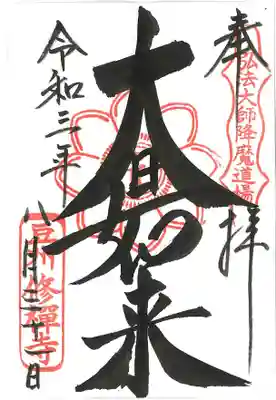 奉拝
弘法大師降魔道場
大日如来
令和三年
八月三十一日
修禅寺